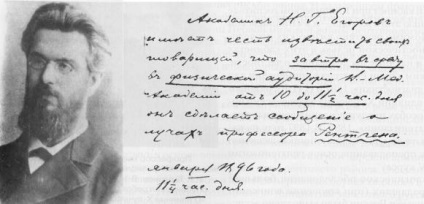 Академикъ Н. Г. Егоровъ
имѣетъ честь извѣстить своихъ
товарищей, что завтра въ среду
въ физической аудиторіи В.-Мед.
Академіи отъ 10 до 11½ час. дня
онъ сдѣлаетъ сообщеніе о
лучахъ профессора Рентгена.
января 1896 года.
11½ час. дня.